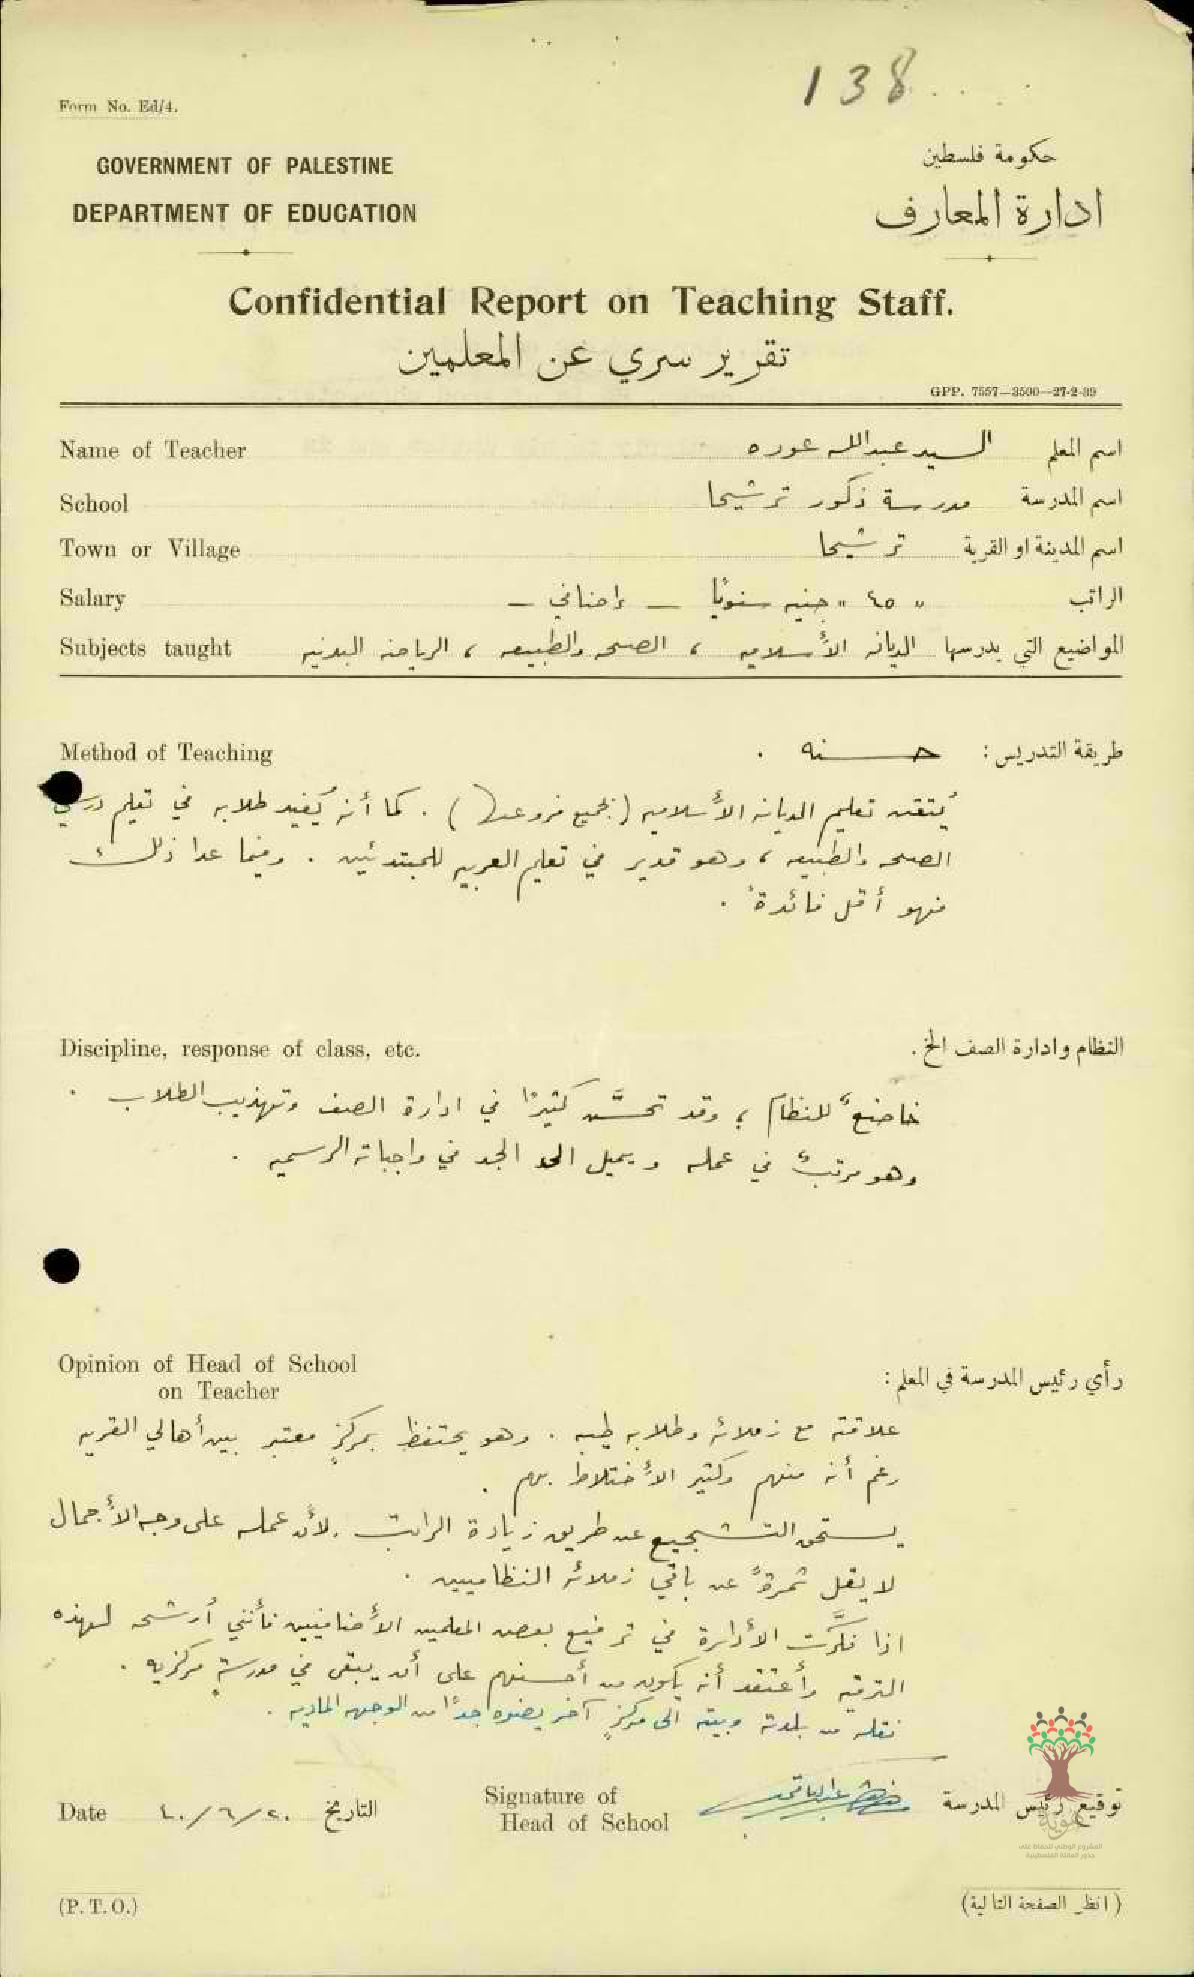 138
Form No. Ed/4.
GOVERNMENT OF PALESTINE
حكومة فلسطين
DEPARTMENT OF EDUCATION
ادارة المعارف
Confidential Report on Teaching Staff.
تقرير سري عن المعلمين
GPP. 7557—3500—27-2-39
Name of Teacher السيد عبدالله عوده اسم المعلم
School مدرسة ذكور ترشيحا اسم المدرسة
Town or Village ترشيحا اسم المدينة او القرية
Salary " ٤٥ " جنيه سنويًا — إضافي — الراتب
Subjects taught الديانه الأسلاميه ، الصحه والطبيعه ، الرياضه البدنيه المواضيع التي يدرسها
Method of Teaching حسنه . طريقة التدريس :
يُتقن تعليم الديانه الأسلاميه (بجميع فروعها) . كما أنه يُفيد طلابه في تعليم درسي
الصحه والطبيعه ، وهو قدير في تعليم العربيه للمبتدئين . وفيما عدا ذلك
فهو أقل فائدةً .
Discipline, response of class, etc. النظام وادارة الصف الخ .
خاضعٌ للنظام ؛ وقد تحسَّن كثيرًا في ادارة الصف وتهذيب الطلاب .
وهو مرتبٌ في عمله ويميل الى الجد في واجباته الرسميه .
Opinion of Head of School رأي رئيس المدرسة في المعلم :
on Teacher
علاقته مع زملائه وطلابه طيبه . وهو يحتفظ بمركزٍ معتبر بين أهالي القريه
رغم أنه منهم وكثير الأختلاط بهم .
يستحق التشجيع عن طريق زيادة الراتب . لأن عمله على وجه الأجمال
لا يقل ثمرةً عن باقي زملائه النظاميين .
اذا فكَّرت الأدارة في ترفيع بعض المعلمين الأضافيين فأنني أرشحه لهذه
الترقيه وأعتقد أنه يكون من أحسنهم على أن يبقى في مدرسةٍ مركزيه .
نقله من بلدته وبيته الى مركزٍ آخر يضره جدًا من الوجهه الماديه .
Date ٤٠/٦/٢٠ التاريخ Signature of توقيع رئيس المدرسة
Head of School
هوية
المشروع الوطني للحفاظ على
جذور العائلة الفلسطينية
(P. T. O.) (انظر الصفحة التالية)